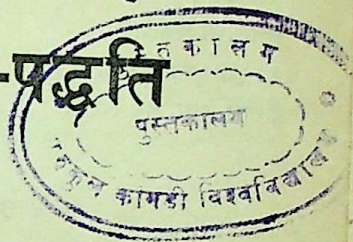 -पद्धति
पुस्तकालय
गुरुकुल कांगड़ी विश्वविद्यालय